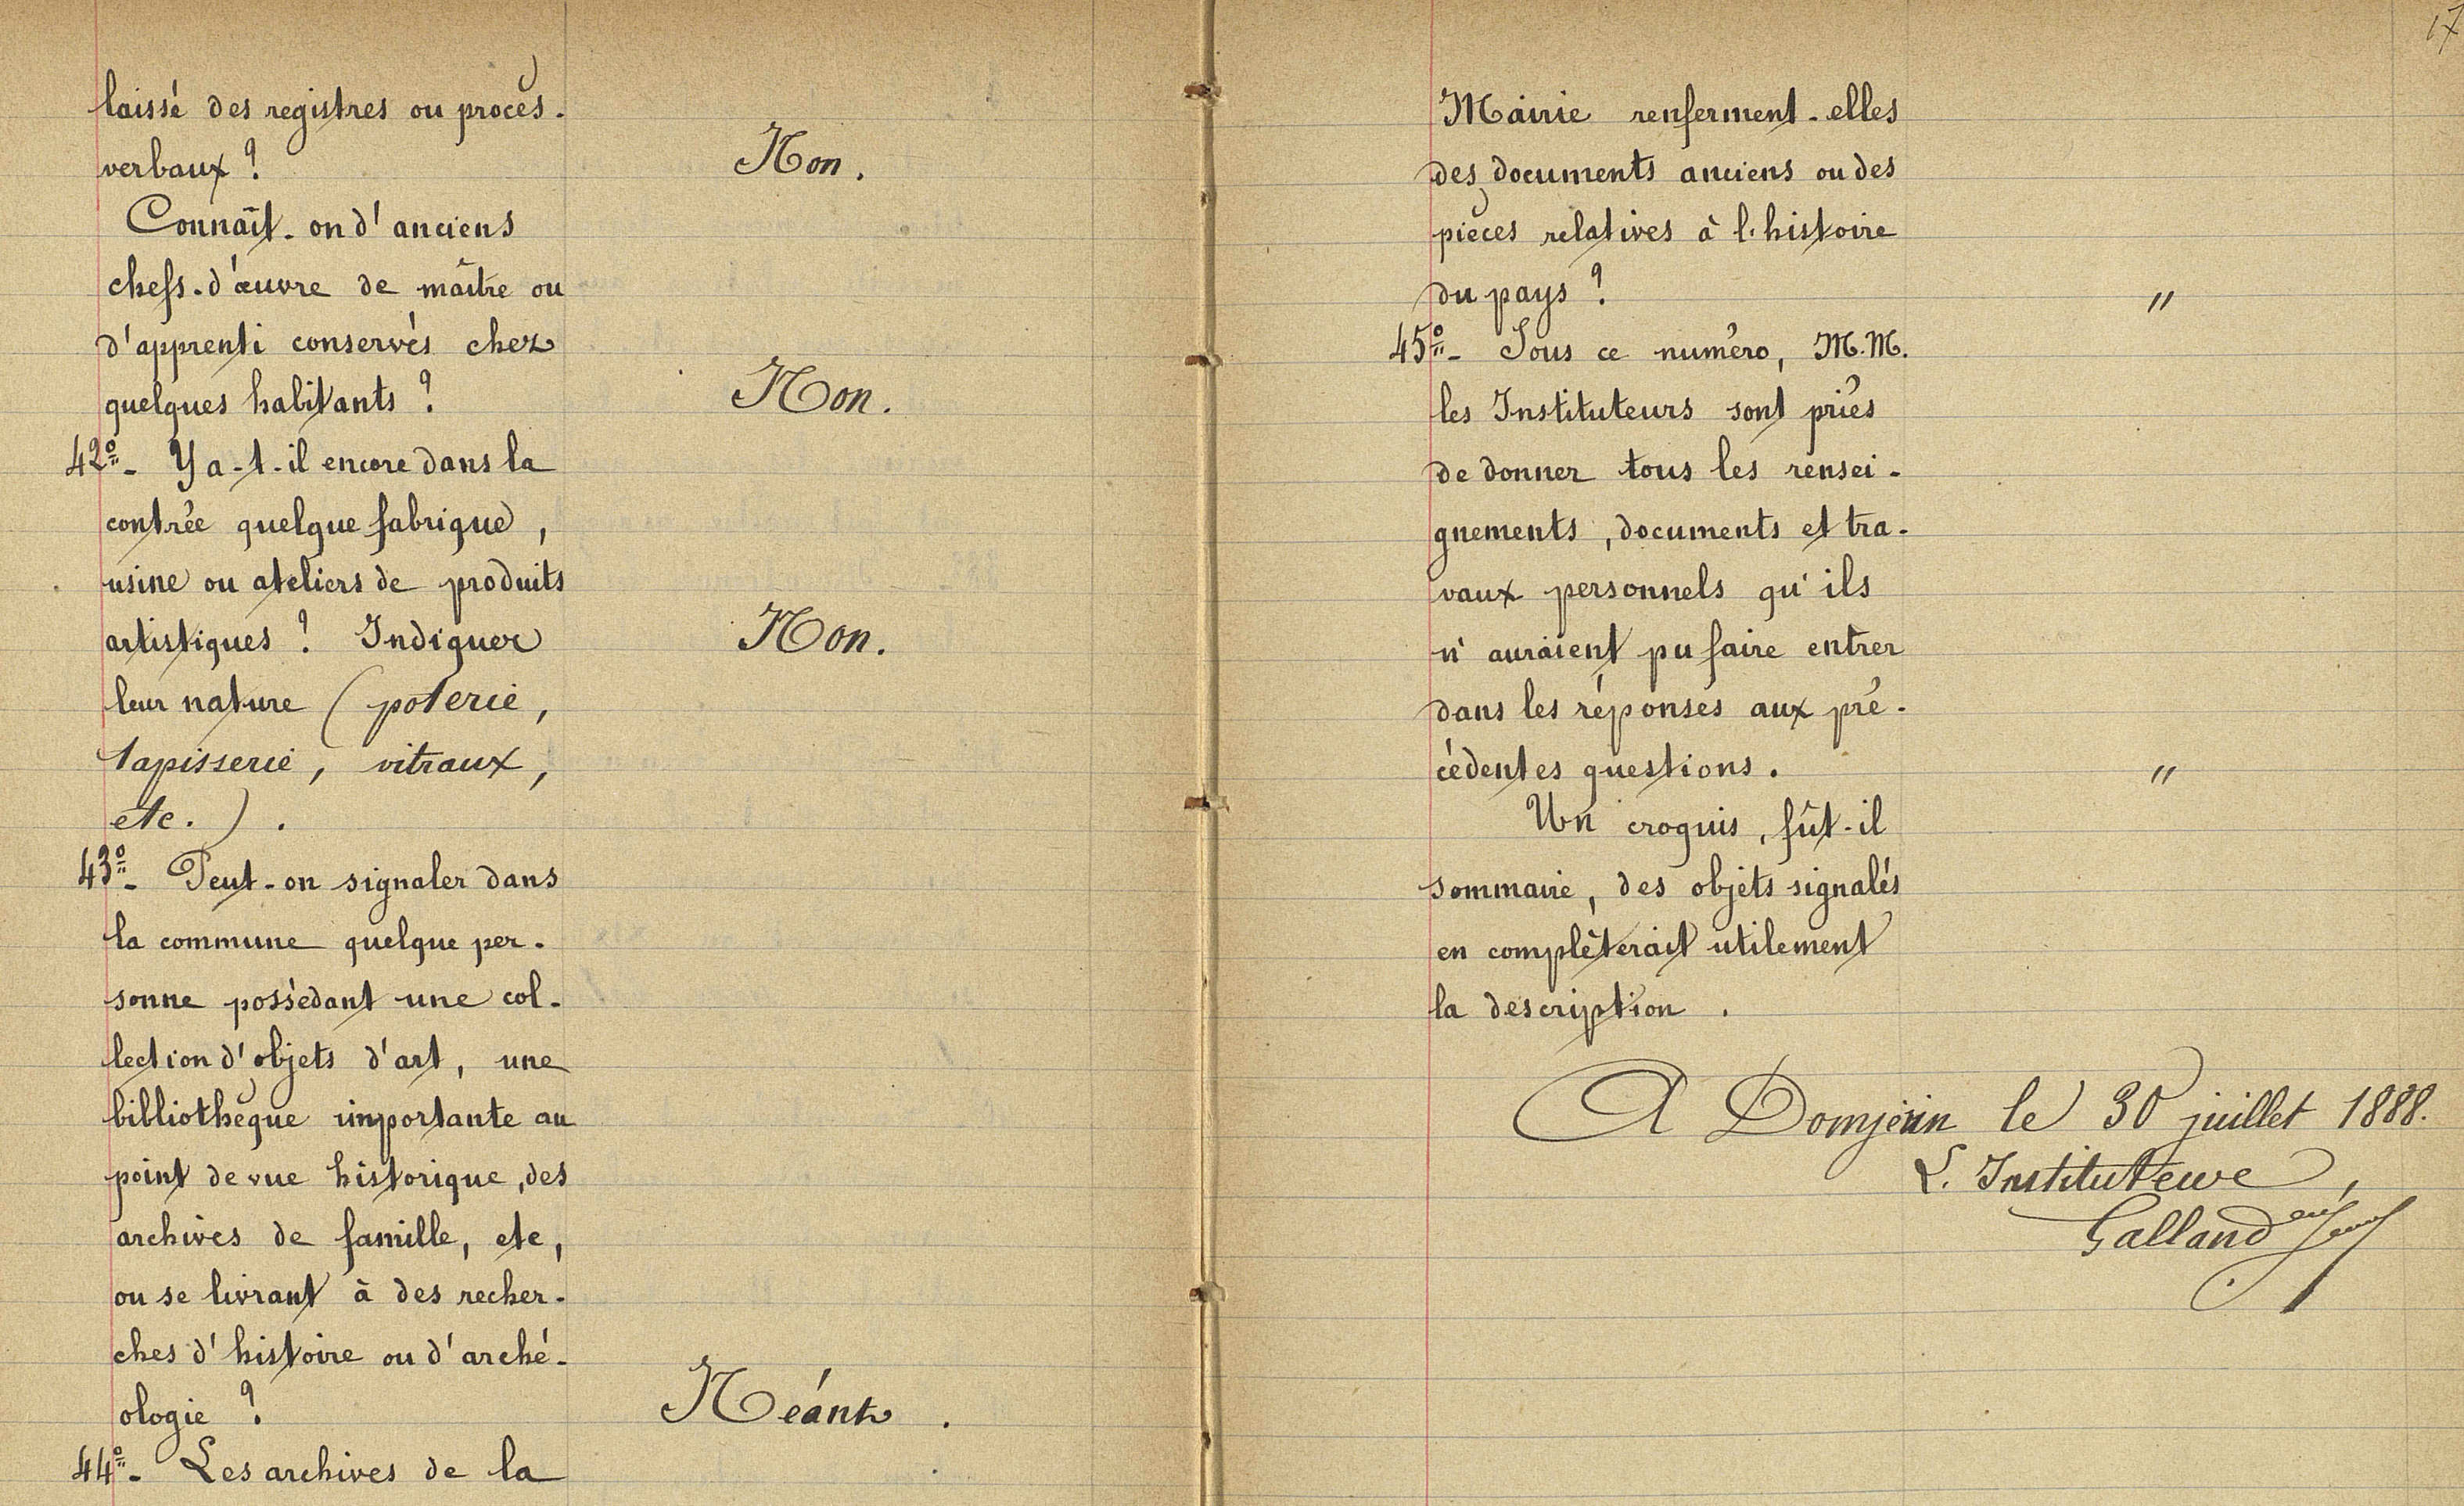 laissé des registres ou procès-
verbaux ?
Non.
Connaît-on d'anciens
chefs-d'œuvre de maître ou
d'apprenti conservés chez
quelques habitants ?
Non.
42º- Y a-t-il encore dans la
contrée quelque fabrique,
usine ou ateliers de produits
artistiques ? Indiquer
Non.
leur nature (poterie,
tapisserie, vitraux,
etc.).
43º- Peut-on signaler dans
la commune quelque per-
sonne possédant une col-
lection d'objets d'art, une
bibliothèque importante au
point de vue historique, des
archives de famille, etc,
ou se livrant à des recher-
ches d'histoire ou d'arché-
ologie ?
Néant.
44º- Les archives de la
17
Mairie renferment-elles
des documents anciens ou des
pièces relatives à l'histoire
du pays ?
"
45º- Sous ce numéro, M.M.
les Instituteurs sont priés
de donner tous les rensei-
gnements, documents et tra-
vaux personnels qu'ils
n'auraient pu faire entrer
dans les réponses aux pré-
cédentes questions.
"
Un croquis, fût-il
sommaire, des objets signalés
en complèterait utilement
la description.
A Domjevin le 30 juillet 1888.
L'Instituteur,
Galland